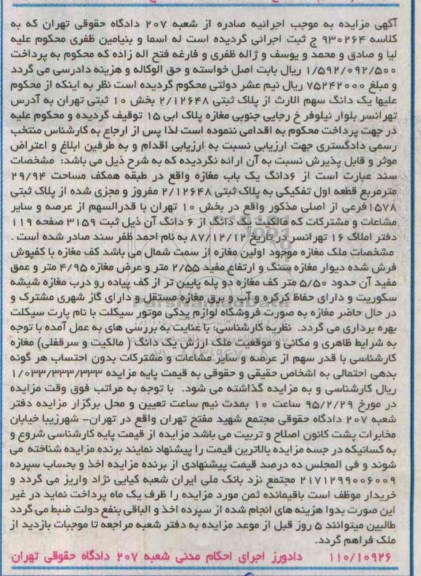 آگهی مزایده به موجب اجرائیه صادره از شعبه ۲۰۷ دادگاه حقوقی تهران که به
کلاسه ۹۳۰۲۶۴ ج ثبت اجرائی گردیده است له اسما و بنیامین ظفری محکوم علیه
لیا و صادق و محمد و یوسف و ژاله ظفری و فارغه فتح اله زاده که محکوم به پرداخت
۱/۵۹۲/۰۹۲/۵۰۰ ریال بابت اصل خواسته و حق الوکاله و هزینه دادرسی می گردد
و مبلغ ۷۵۲۴۲۰۰۰ ریال نیم عشر دولتی محکوم گردیده است نظر به اینکه از محکوم
علیها یک دانگ سهم الارث از پلاک ثبتی ۲/۱۲۶۴۸ بخش ۱۰ ثبتی تهران به آدرس
تهرانسر بلوار نیلوفر خ رجایی جنوبی مغازه پلاک ابی ۱۵ توقیف گردیده و محکوم علیه
در جهت پرداخت محکوم به اقدامی ننموده است لذا پس از ارجاع به کارشناس منتخب
رسمی دادگستری جهت ارزیابی نسبت به ارزیابی اقدام و به طرفین ابلاغ و اعتراض
موثر و قابل پذیرش نسبت به آن ارائه نگردیده که به شرح ذیل می باشد: مشخصات
سند عبارت است از ۶دانگ یک باب مغازه واقع در طبقه همکف مساحت ۲۹/۹۴
مترمربع قطعه اول تفکیکی به پلاک ثبتی ۲/۱۲۶۴۸ مفروز و مجزی شده از پلاک ثبتی
۱۵۷۸فرعی از اصلی مذکور واقع در بخش ۱۰ تهران با قدرالسهم از عرصه و سایر
مشاعات و مشترکات که مالکیت یک دانگ از ۶ دانگ آن ذیل ثبت ۳۱۵۹ صفحه ۱۱۹
دفتر املاک ۱۶ تهرانسر در تاریخ ۸۷/۱۲/۱۲ به نام احمد ظفر سند صادر شده است .
مشخصات ملک مغازه موجود اولین مغازه از سمت شمال می باشد کف مغازه با کفپوش
فرش شده دیوار مغازه سنگ و ارتفاع مفید ۲/۵۵ متر و عرض مغازه ۴/۹۵ متر و عمق
مفید آن حدود ۵/۵۰ متر کف مغازه دو پله پایین تر از کف پیاده رو درب مغازه شیشه
سکوریت و دارای حفاظ کرکره و آب و برق مغازه مستقل و دارای گاز شهری مشترک و
در حال حاضر مغازه به صورت فروشگاه لوازم یدکی موتور سیکلت با نام پارت سیکلت
بهره برداری می گردد. نظریه کارشناسی: با عنایت به بررسی های به عمل آمده با توجه
به شرایط ظاهری و مکانی و موقعیت ملک ارزش یک دانگ ( مالکیت و سرقفلی) مغازه
کارشناسی با قدر سهم از عرصه و سایر مشاعات و مشترکات بدون احتساب هر گونه
بدهی احتمالی به اشخاص حقیقی و حقوقی به قیمت پایه مزایده ۱/۰۳۳/۳۳۳/۳۳۳
ریال کارشناسی و به مزایده گذاشته می شود. با توجه به مراتب فوق وقت مزایده
در مورخ ۹۵/۲/۲۹ ساعت ۱۰ بمدت نیم ساعت تعیین و محل برگزار مزایده دفتر
شعبه ۲۰۷ دادگاه حقوقی مجتمع شهید مفتح تهران واقع در تهران- شهرزیبا خیابان
مخابرات پشت کانون اصلاح و تربیت می باشد مزایده از قیمت پایه کارشناسی شروع و
به کسانیکه در جسه مزایده بالاترین قیمت را پیشنهاد نمایند برنده مزایده شناخته می
شوند و فی المجلس ده درصد قیمت پیشنهادی از برنده مزایده اخذ و بحساب سپرده
۲۱۷۱۲۹۹۰۰۶۰۰۹ مجتمع نزد بانک ملی ایران شعبه کیایی نژاد واریز می گردد و
خریدار موظف است باقیمانده ثمن مورد مزایده را ظرف یک ماه پرداخت نماید در غیر
این صورت بدوا هزینه های انجام شده از سپرده اخذ و الباقی بنفع دولت ضبط می گردد
طالبین میتوانند ۵ روز قبل از موعد مزایده به دفتر شعبه مراجعه تا موجبات بازدید از
ملک فراهم گردد.
۱۱۰/۱۰۹۲۶ دادورز اجرای احکام مدنی شعبه ۲۰۷ دادگاه حقوقی تهران